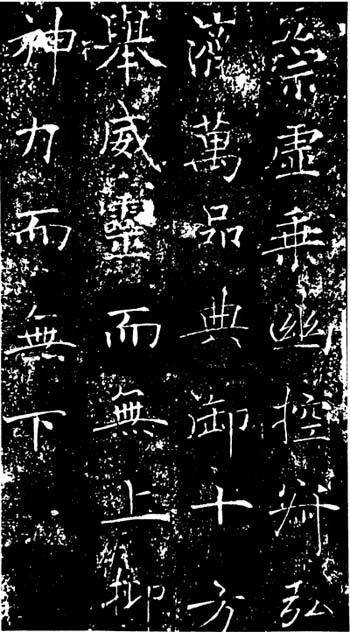 崇虛乗幽控寂弘
濟萬品典御十方
舉威靈而無上抑
神力而無下